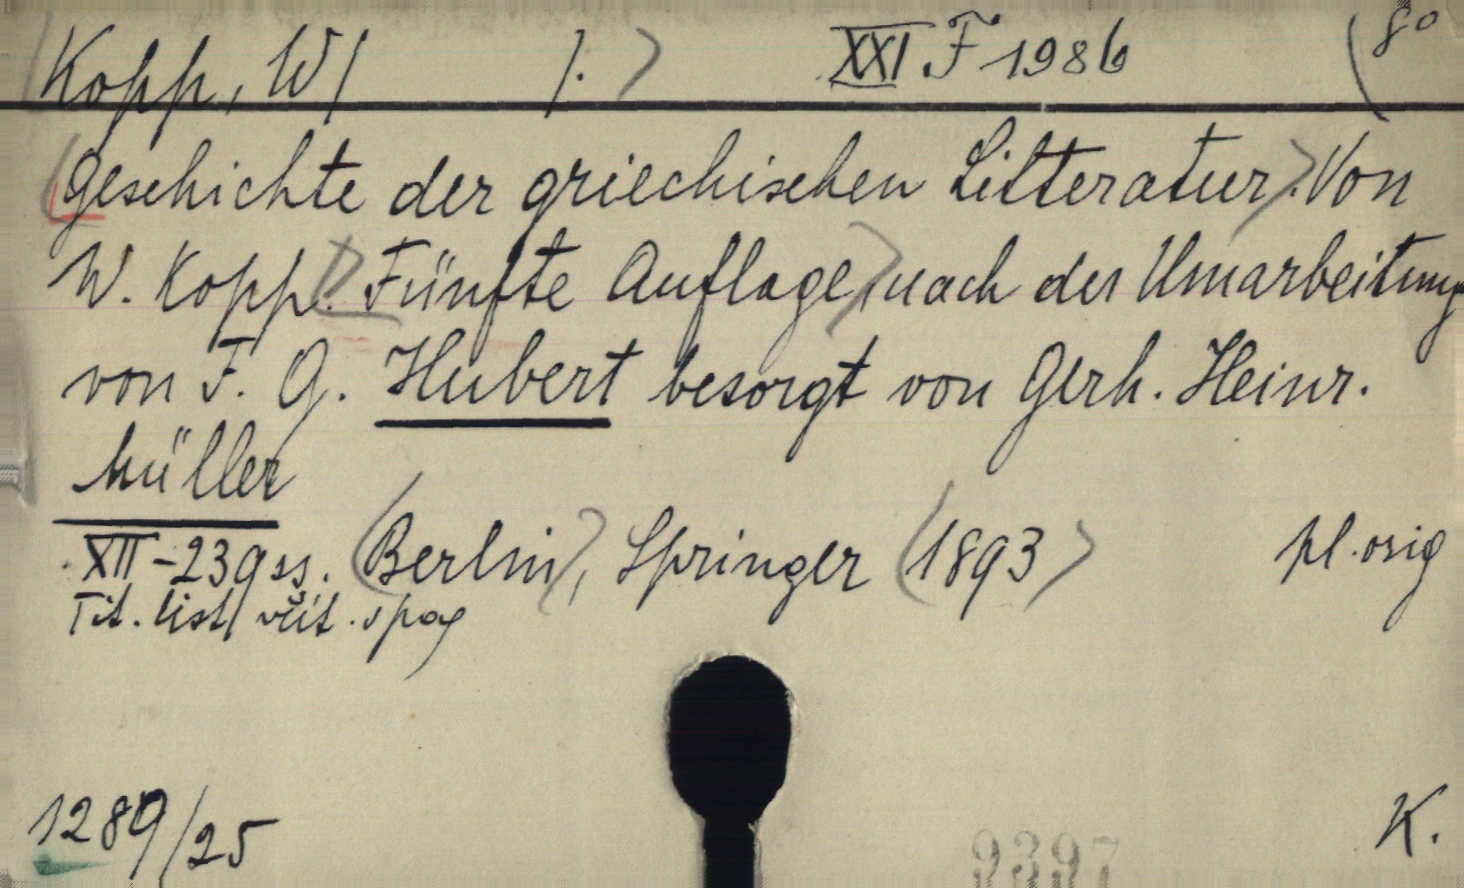 Kopp, W/ /. XXI F 1986 8°
Geschichte der griechischen Litteratur. Von
W. Kopp. Fünfte Auflage, nach der Umarbeitung
von F. G. Hubert besorgt von Gerh. Heinr.
Müller
XII-239 ss. Berlin, Springer 1893 pl. orig
Tit. list
1289/25 K.
9397